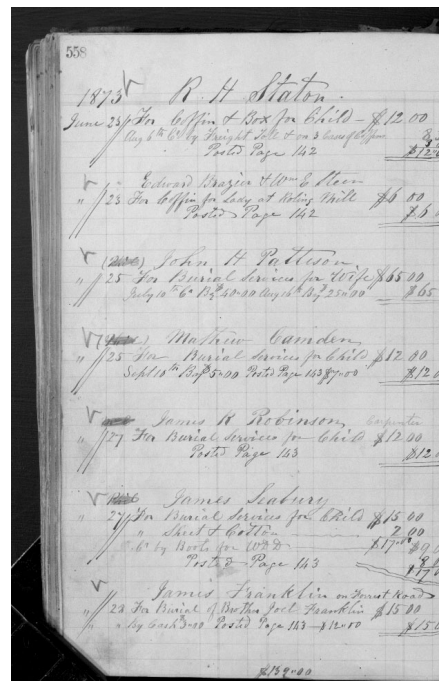 558
1873 R. H. Staton.
June 23 For Coffin & Box for Child — $12 00
Aug 6th Cr by Freight & on 3 cases of Coffins 8
Posted Page 142 $12
Edward Brazier & Wm E
" 23 For Coffin for Lady at Roling Mill $6 00
Posted Page 142 $6
John H Pattison
" 25 For Burial Services for Wife $65 00
July 10th Cr By $40=00 Aug 16th By $25=00 $65
Mathew Camden
" 25 For Burial Services for Child $12 00
Sept 10th By $5=00 Posted Page 143 $7=00 $12 0
James R. Robinson, Carpenter
" 27 For Burial Services for Child $12 00
Posted Page 143 $12 0
James Seabury
" 27 For Burial Services for Child $15 00
" Sheet & Cotton 2 00
Cr by Boots for W.D.D $17=00 $9 0
Posted Page 143 8 0
$17=0
James Franklin on Forrest Road
" 28 For Burial of Brother Joel Franklin $15 00
" By Cash 3=00 Posted Page 143 — $12=00 $15 0
$139=00